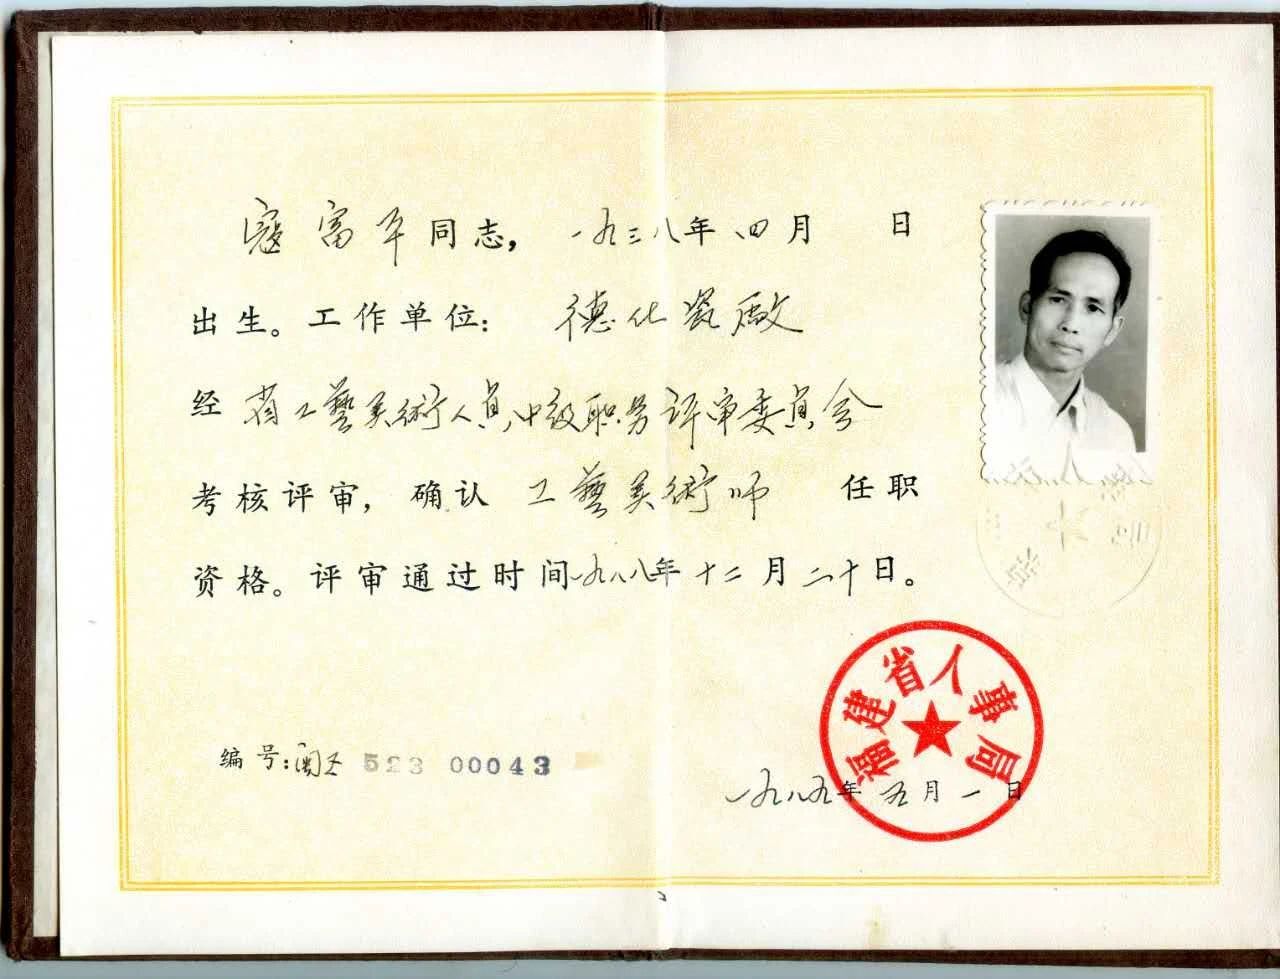 寇富平同志，一九三八年四月 日
出生。工作单位：德化瓷厰
经省工藝美術人員中级职务评审委員会
考核评审，确认工藝美術师任职
资格。评审通过时间一九八八年十二月二十日。
福建省人事局
编号：闽工 523 00043
一九八九年五月一日